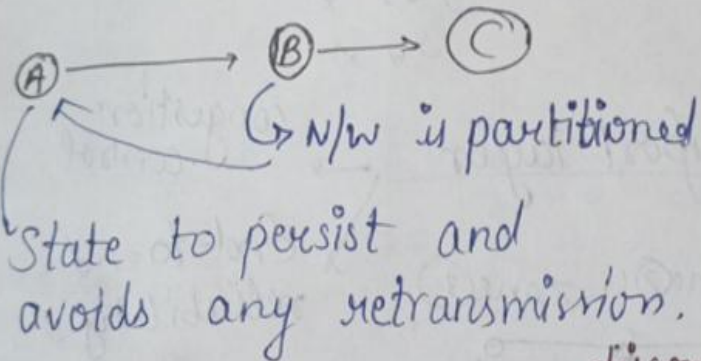 A B C
N/W is partitioned
State to persist and
avoids any retransmission.